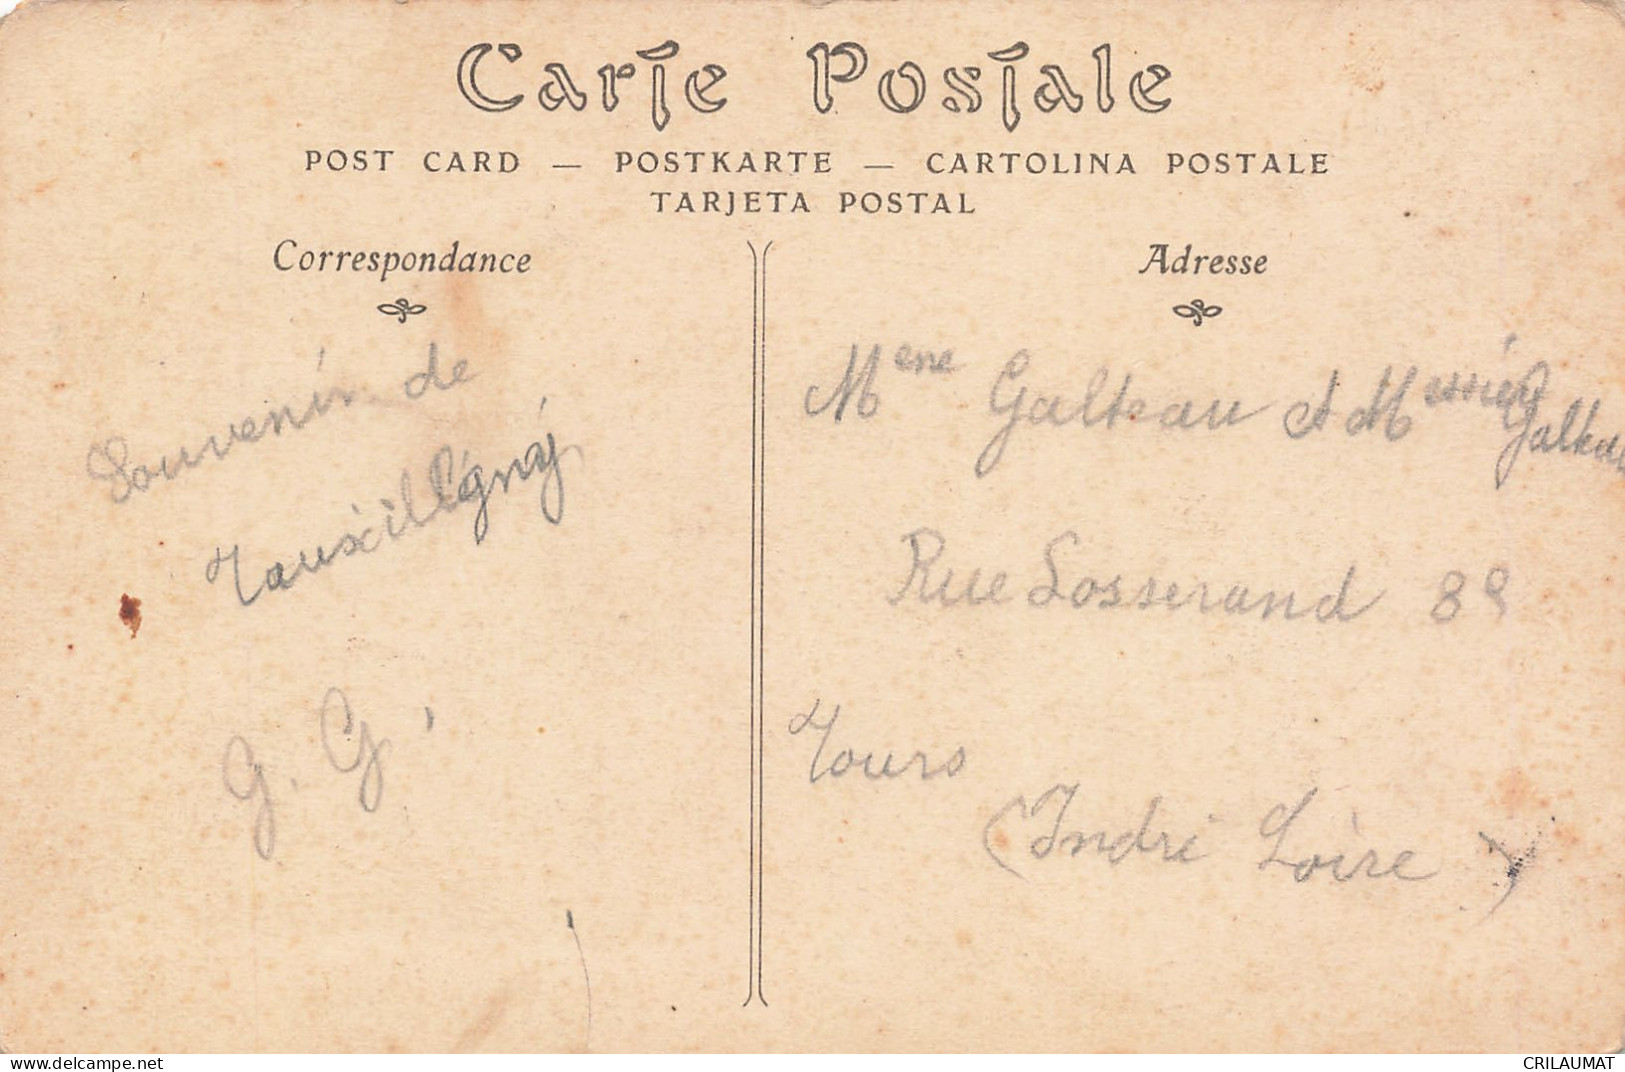 Carte Postale
POST CARD — POSTKARTE — CARTOLINA POSTALE
TARJETA POSTAL
Correspondance
Souvenir de
Tauxilligny
G. G.
Adresse
Mme Galteau et Messieu Galteau
Rue Losserand 89
Tours
(Indri Loire)
delcampe.net
CRILAUMAT